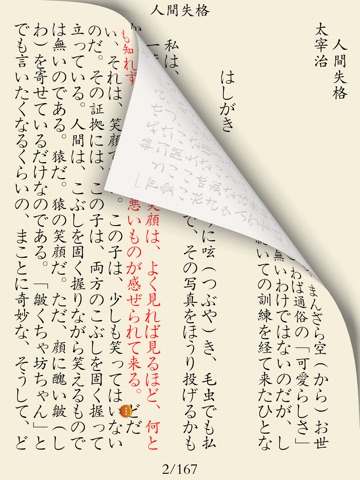 人間失格
人間失格
太宰治
まんざら空（から）お世
わば通俗の「可愛らしさ」
無いわけではないのだが、し
続いての訓練を経て来たひとな
はしがき
に呟（つぶや）き、毛虫でも払
で、その写真をほうり投げるかも
私は、
笑顔は、よく見れば見るほど、何と
も知れず
悪いものが感ぜられて来る。どだ
い、それは、笑顔で
。この子は、少しも笑ってはいない
のだ。その証拠には、この子は、両方のこぶしを固く握って
立っている。人間は、こぶしを固く握りながら笑えるもので
は無いのである。猿だ。猿の笑顔だ。ただ、顔に醜い皺（し
わ）を寄せているだけなのである。「皺くちゃ坊ちゃん」と
でも言いたくなるくらいの、まことに奇妙な、そうして、ど
2/167